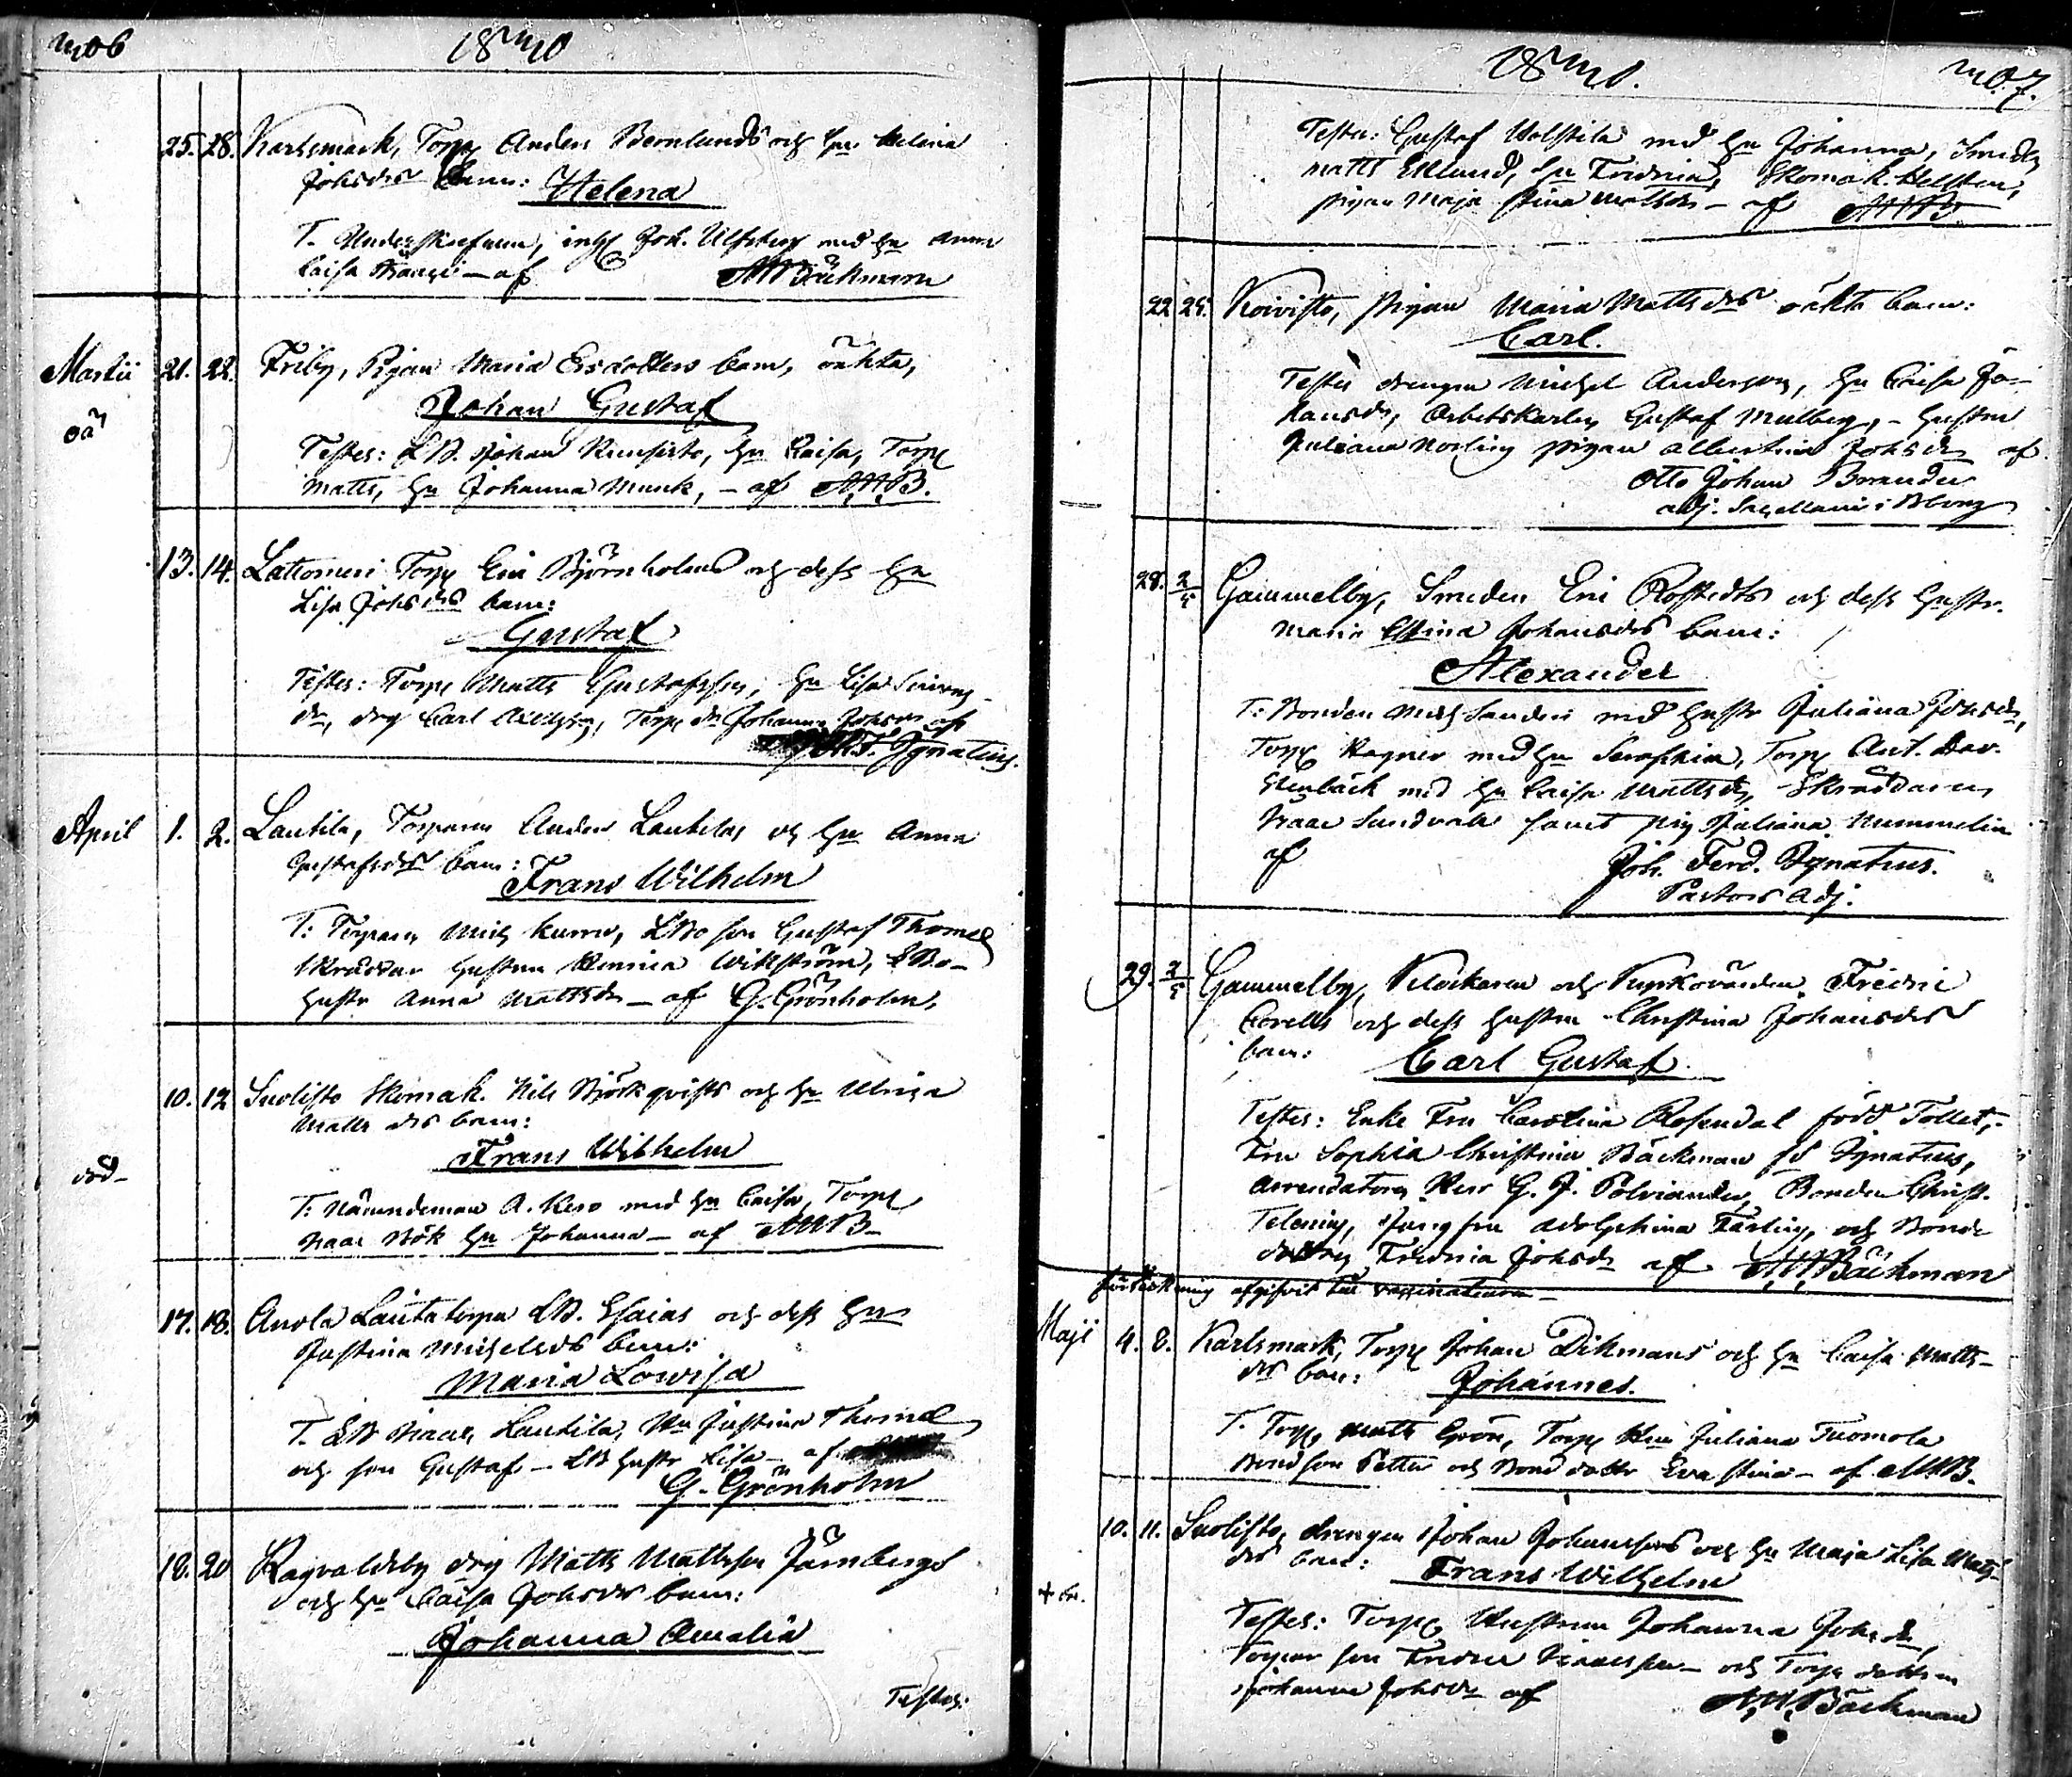 406
1840
25. 28. Karlsmark, Torp Anders Bernlunds och hu Helena
Johsdrs barn: Helena
T. Joh. med hu Anna
Caisa af AWBäckman
Martii 21. 22. Friby, Pigan Maria Ersdotters barn, oäkta,
oä
Johan Gustaf
Testes: LB. Johan hu Caisa, Torp
Matts, hu Johanna Munk, - af AWB.
13. 14. Lattomeri Torp Eric Björnholms och dess hu
Lisa Johsdrs barn:
Gustaf
Testes: Torp Matts Gustafsson, hu Lisa
dr, drg Carl Torp dr Johanna Johsdr af
J. F. Ignatius.
April 1. 2. Lautila, Torparen Anders Lautilas och hu Anna
Gustafsdrs barn:
Frans Wilhelm
T: Torparen Mich LBo son Gustaf Thome
Skräddar hustrun Henrica Wikström, LBo-
hustr Anna Mattsdr - af G. Grönholm.
10. 12 Suolisto Skomak. Nils Björkqvists och hu Ulrica
Matts drs barn:
Frans Wilhelm
död
T: Nämndeman A. Kero med hu Caisa, Torp
Isaac Bök hu Johanna - af AWB-
17. 18. Anola Lautatorpa LB. Esaias och dess hu
Justina Michelsdrs barn:
Maria Lowisa
T. LB Isaac Lautila, Hu Justina Thome
och son Gustaf - LB hustr Lisa - af
G. Grönholm
18. 20 Ragvaldsby drg Matts Mattsson Järnbergs
och hu Caisa Johsdrs barn:
Johanna Amalia
Testes:
1840.
407.
Testes: Gustaf med hu Johanna, Smeden
Matts Eklund, hu Fredrica, Skomak. Hellsten,
pigan Maja Stina Mattsdr - af AWB
22. 25. Koivisto, pigan Maria Mattsdrs oäkta barn:
Carl.
Testes drengen Michel Andersson, hu Caisa Jo-
hansdr, Arbetskarlen Gustaf Mulberg, - hustru
Juliana Norling pigan Albertina Johsdr af
Otto Johan Brander
adj. Sacellani i Bborg
28. 2/5 Gammelby, Smeden Eric Rostedts och dess hustr.
Maria Stina Johansdrs barn:
Alexander
T: Bonden Mich Sanderi med hustr Juliana Johsdr,
Torp Ragner med hu Seraphia, Torp Ant. Dav.
Stenbäck med hu Caisa Mattsdr, Skräddaren
Isaac Sundvall samt pig Juliana Nummelin
af Joh. Ferd. Ignatius.
Pastors Adj.
29. 2/5 Gammelby, Klockaren och Kyrkovärden Fredric
Corells och dess hustru Christina Johansdrs
barn: Carl Gustaf.
Testes: Enke Fru Carolina Rosendal född Tollet,
Fru Sophia Christina Bäckman fö Ignatius,
Arrendatorn Herr G. J. Polviander, Bonden Christ.
Jungfru Adolphina Färling, och Bonde
dottren Fredrica Johsdr af AWBäckman
förteckning afgifvit till vaccinateuren -
Maji 4. 8. Karlsmark, Torp Johan Dikmans och hu Caisa Matts-
drs barn: Johannes.
T. Torp, Matts Grön, Torp Hu Juliana Tuomola
Bondson Petter och Bond dottr Eva Stina - af AWB.
10. 11. Suolisto, drengen Johan Johanssons och hu Maja Lisa Matts-
drs barn: Frans Wilhelm
+
Testes: Torp Hustrun Johanna Johsdr,
Torpar son Fredric Isaacsson - och Torp dottren
Johanna Johsdr af AWBäckman